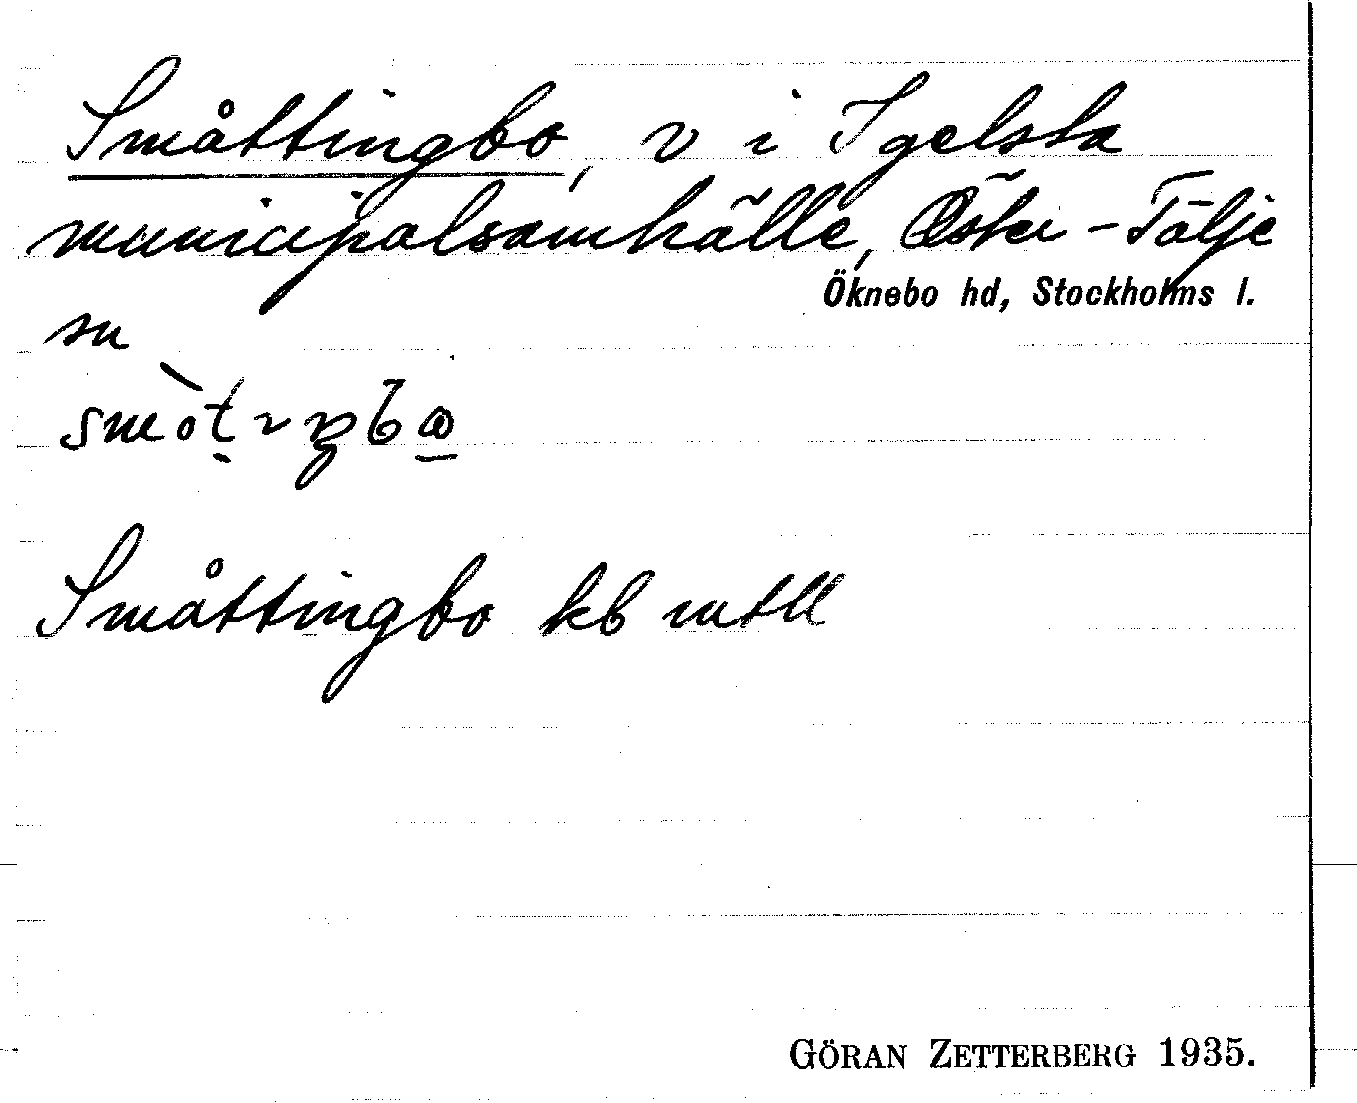 Småttingbo, v i Igelsta
municipalsamhälle, Öster-Tälje
Öknebo hd, Stockholms l.
sn
Småttingbo kb mtll
GÖRAN ZETTERBERG 1935.